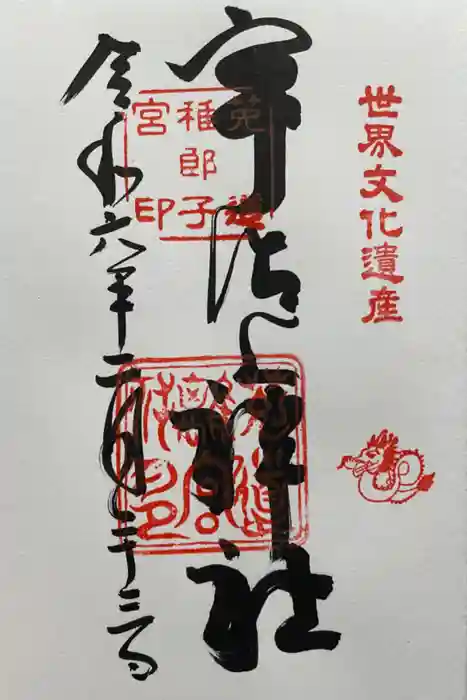 世界文化遺産
宇治上神社
菟道
稚郎子
宮印
令和六年二月二十三日